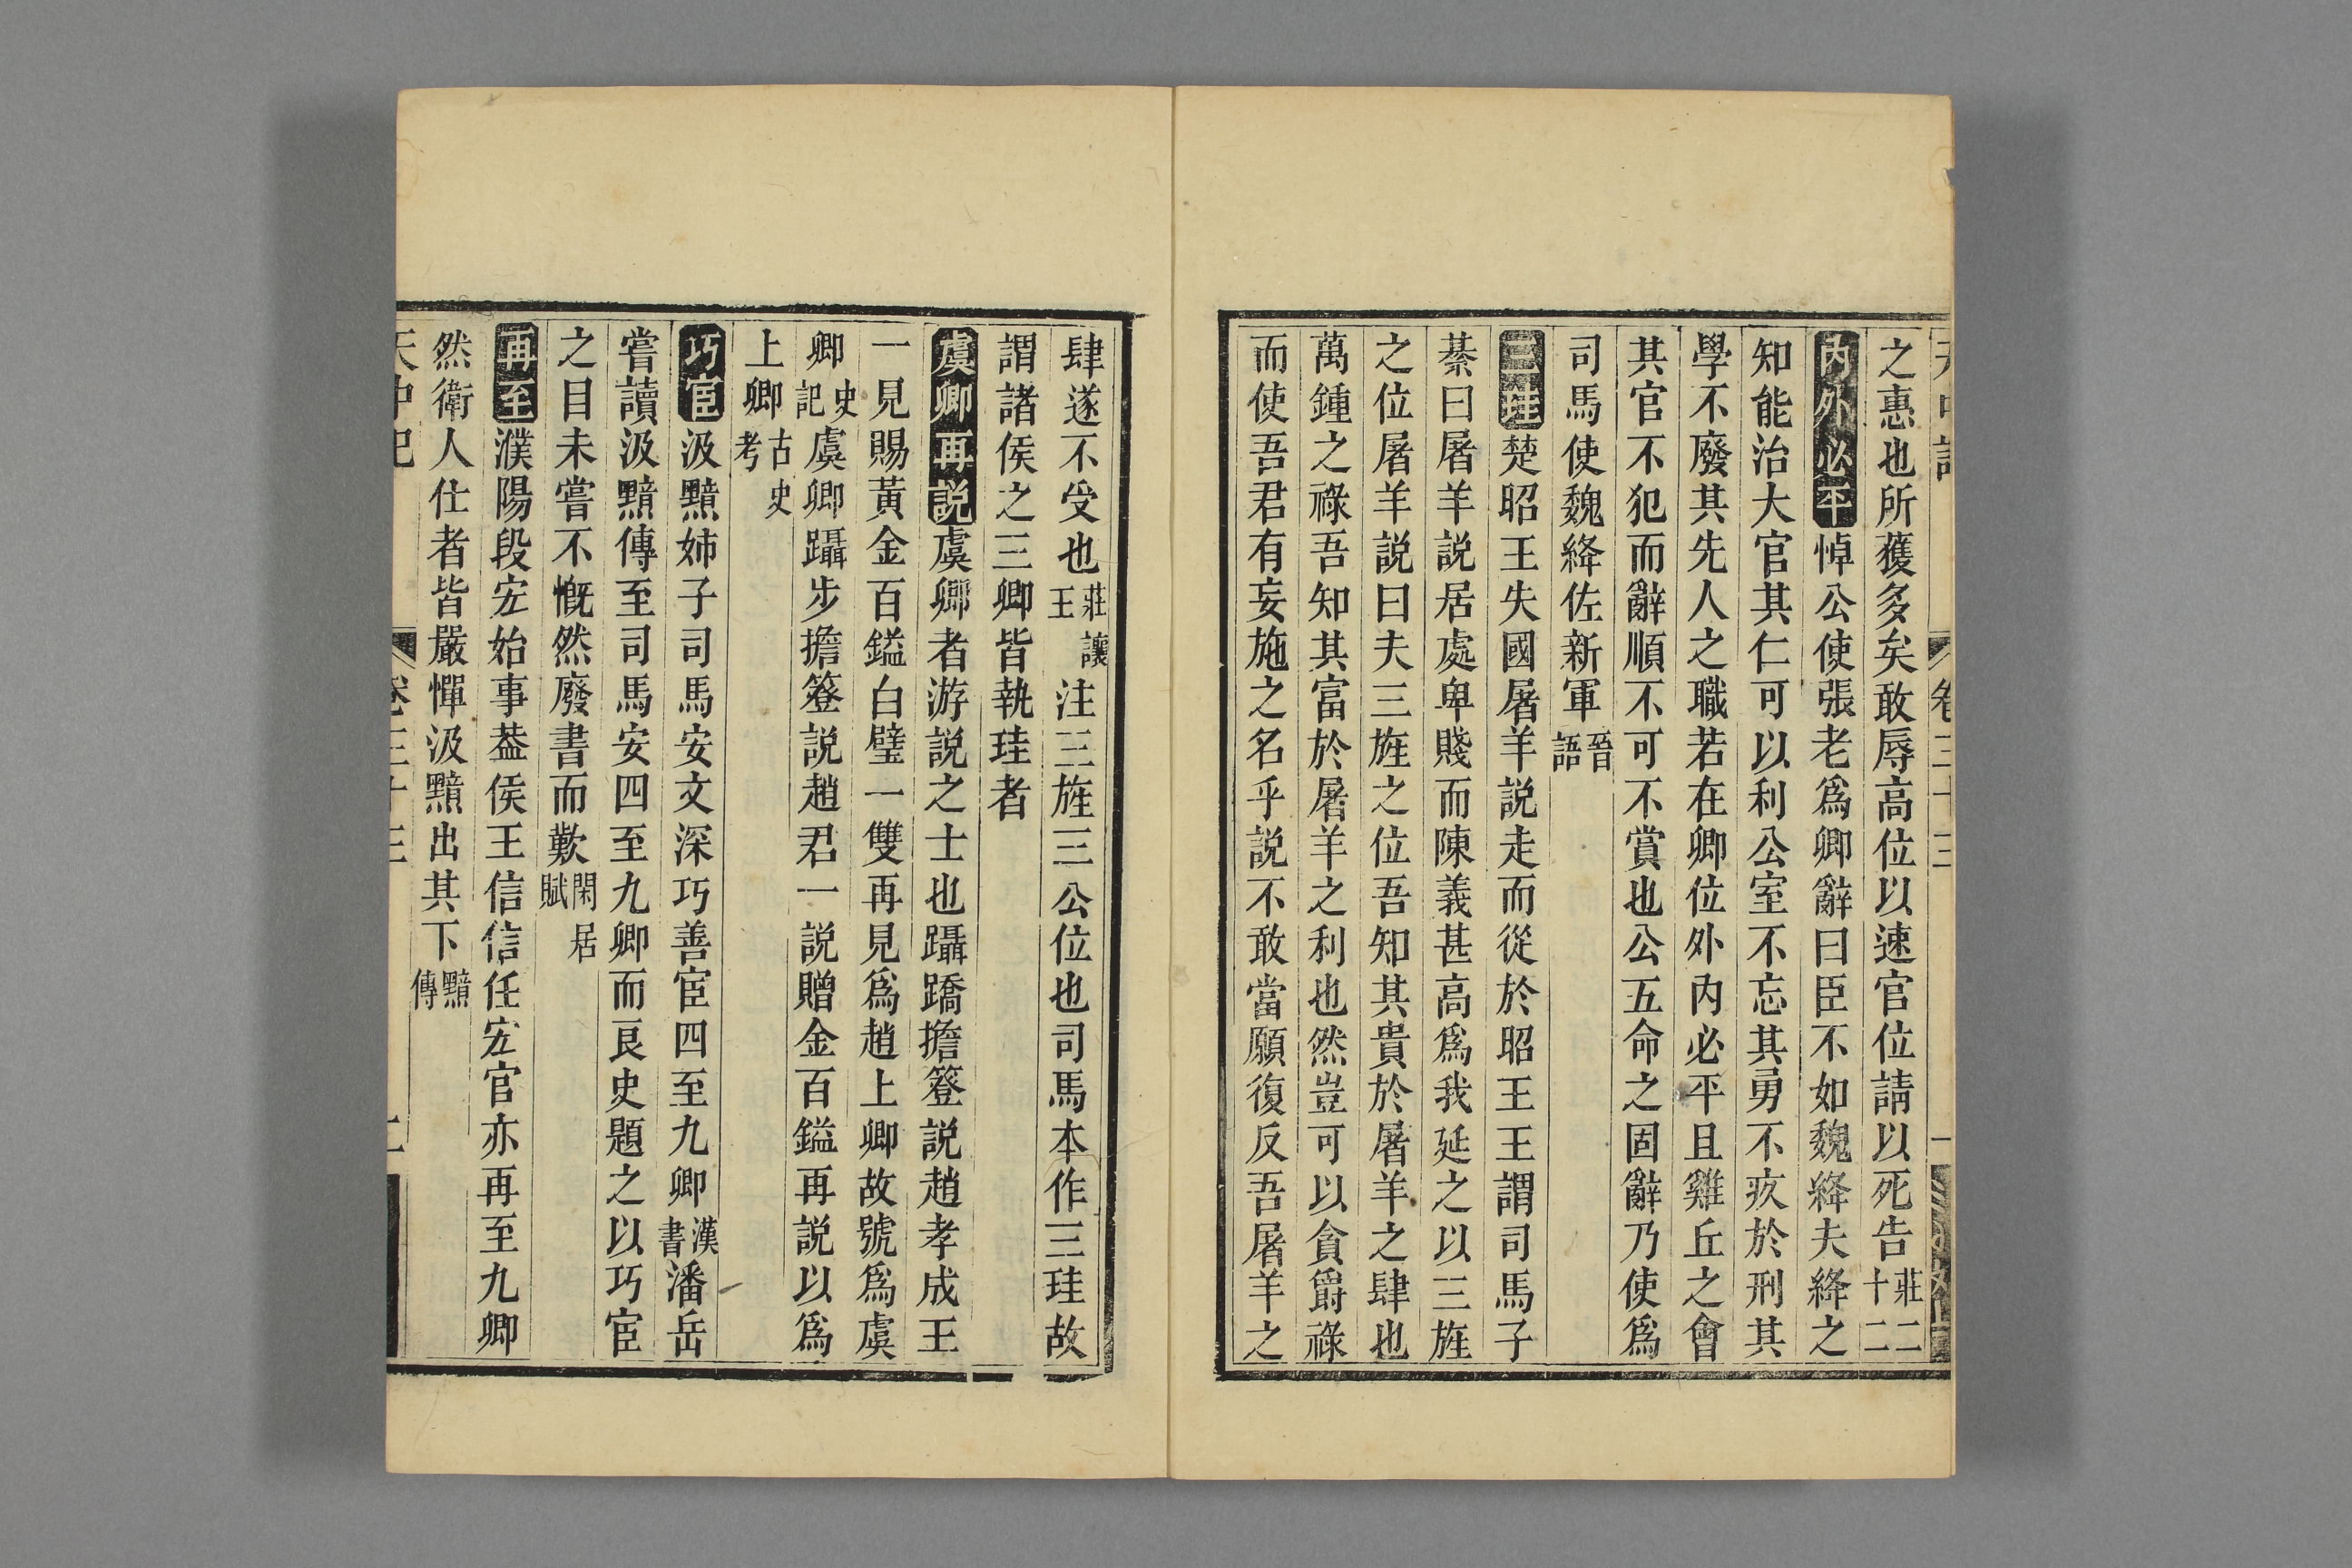 之惠也所獲多矣敢辱高位以速官位請以死告莊二十二
內外必平悼公使張老爲卿辭曰臣不如魏絳夫絳之
知能治大官其仁可以利公室不忘其勇不疚於刑其
學不廢其先人之職若在卿位外內必平且雞丘之會
其官不犯而辭順不可不賞也公五命之固辭乃使爲
司馬使魏絳佐新軍晉語
三珪楚昭王失國屠羊説走而從於昭王王謂司馬子
綦曰屠羊説居處卑賤而陳義甚高爲我延之以三旌
之位屠羊説曰夫三旌之位吾知其貴於屠羊之肆也
萬鍾之祿吾知其富於屠羊之利也然豈可以貪爵祿
而使吾君有妄施之名乎説不敢當願復反吾屠羊之
肆遂不受也莊讓王注三旌三公位也司馬本作三珪故
謂諸侯之三卿皆執珪者
虞卿再説虞卿者游説之士也躡蹻擔簦説趙孝成王
一見賜黃金百鎰白璧一雙再見爲趙上卿故號爲虞
卿史記虞卿躡步擔簦説趙君一説贈金百鎰再説以爲
上卿古史考
巧宦汲黯姊子司馬安文深巧善宦四至九卿漢書潘岳
嘗讀汲黯傳至司馬安四至九卿而良史題之以巧宦
之目未嘗不慨然廢書而歎閑居賦
再至濮陽段宏始事葢侯王信信任宏官亦再至九卿
然衛人仕者皆嚴憚汲黯出其下黯傳
天中記 卷三十三 二